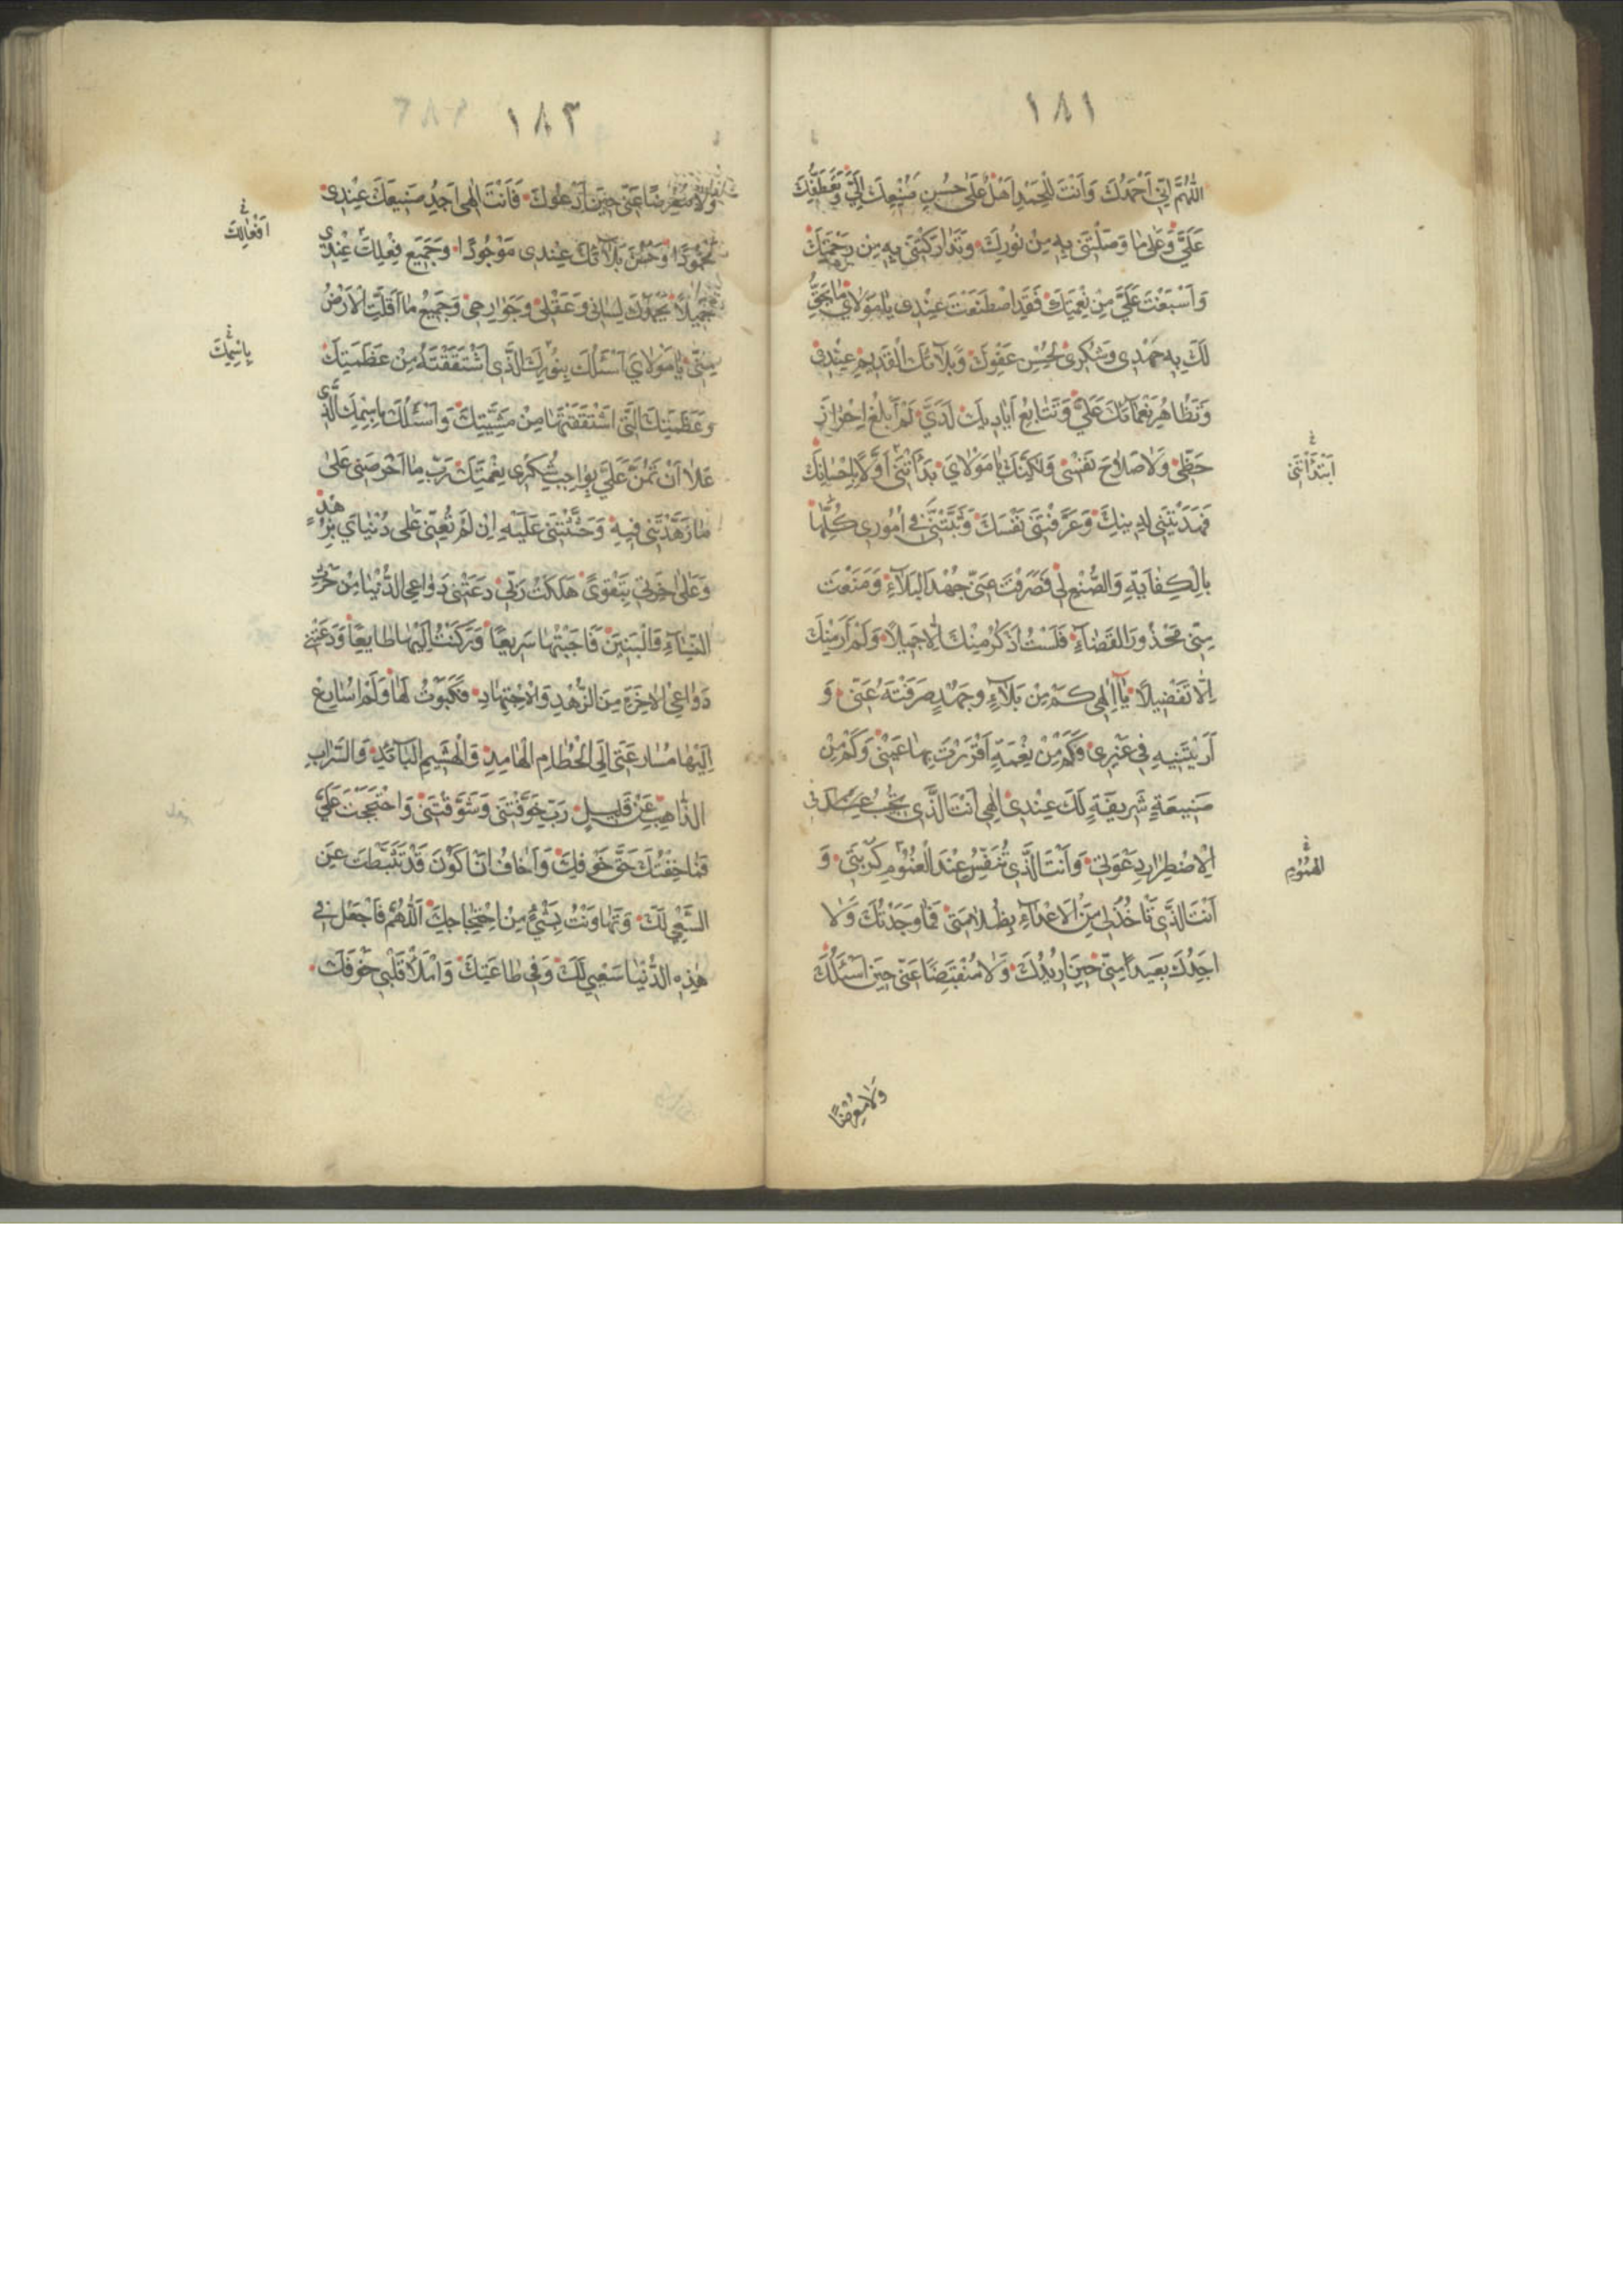 ١٨١
اللّٰهُمَّ اِنّي اَحْمَدُكَ وَاَنْتَ لِلْحَمْدِ اَهْلٌ عَلٰى حُسْنِ صُنْعِكَ اِلَيَّ وَتَعَطُّفِكَ
عَلَيَّ وَعَلٰى مٰا وَصَلْتَنى بِهِ مِنْ نُورِكَ وَتَدَارَكْتَنى بِهِ مِنْ رَحْمَتِكَ
وَاَسْبَغْتَ عَلَيَّ مِنْ نِعْمَتِكَ فَقَدِ اصْطَنَعْتَ عِنْدى يٰا مَوْلٰاىَ مٰا يَحِقُّ
لَكَ بِهِ حَمْدى وَشُكْرى لِحُسْنِ عَفْوِكَ وَبَلٰائِكَ الْقَديمِ عِنْدى
وَتَظٰاهُرِ نَعْمٰائِكَ عَلَيَّ وَتَتٰابُعِ اَيٰاديكَ لَدَيَّ لَمْ اَبْلُغْ اِحْرٰازَ
حَظّى وَلٰا صَلٰاحَ نَفْسى وَلٰكِنَّكَ يٰا مَوْلٰايَ بَدَأْتَنى اَوَّلًا بِاِحْسٰانِكَ
اِبْتَدَأْتَنى
فَهَدَيْتَنى لِدينِكَ وَعَرَّفْتَنى نَفْسَكَ وَثَبَّتَّنى فى اُمُورى كُلِّهٰا
بِالْكِفٰايَةِ وَالصُّنْعِ لى فَصَرَفْتَ عَنّى جَهْدَ الْبَلٰاءِ وَمَنَعْتَ
مِنّى مَحْذُورَ الْقَضٰاءِ فَلَسْتُ اَذْكُرُ مِنْكَ اِلّٰا جَميلًا وَلَمْ اَرَ مِنْكَ
اِلّٰا تَفْضيلًا يٰا اِلٰهى كَمْ مِنْ بَلٰاءٍ وَجَهْدٍ صَرَفْتَهُ عَنّى وَ
اَرَيْتَنيهِ فى غَيْرى فَكَمْ مِنْ نِعْمَةٍ اَقْرَرْتَ بِهٰا عَيْنى وَكَمْ مِنْ
صَنيعَةٍ شَريفَةٍ لَكَ عِنْدى اِلٰهى اَنْتَ الَّذى يُجيبُ عِنْدَ
الْاِضْطِرٰارِ دَعْوَتى وَاَنْتَ الَّذى تُنَفِّسُ عِنْدَ الْغُمُومِ كُرْبَتى وَ
الْهُمُومِ
اَنْتَ الَّذى تَأْخُذُ لى مِنَ الْاَعْدٰاءِ بِظُلٰامَتى فَمٰا وَجَدْتُكَ وَلٰا
اَجِدُكَ بَعيدًا مِنّى حينَ اُريدُكَ وَلٰا مُنْقَبِضًا عَنّى حينَ اَسْئَلُكَ
وَلٰا مُعْرِضًا
١٨٢
وَلٰا مُعْرِضًا عَنّى حينَ اَدْعُوكَ فَاَنْتَ اِلٰهى اَجِدُ صَنيعَكَ عِنْدى
مَحْمُودًا وَحُسْنَ بَلٰائِكَ عِنْدى مَوْجُودًا وَجَميعَ فِعْلِكَ عِنْدى
اَفْعٰالِكَ
جَميلًا يَحْمَدُكَ لِسٰانى وَعَقْلى وَجَوٰارِحى وَجَميعُ مٰا اَقَلَّتِ الْاَرْضُ
مِنّى يٰا مَوْلٰايَ اَسْئَلُكَ بِنُورِكَ الَّذى اشْتَقَقْتَهُ مِنْ عَظَمَتِكَ
بِاسْمِكَ
وَعَظَمَتِكَ الَّتى اشْتَقَقْتَهٰا مِنْ مَشِيَّتِكَ وَاَسْئَلُكَ بِاسْمِكَ الَّذى
عَلٰا اَنْ تَمُنَّ عَلَيَّ بِوٰاجِبِ شُكْرى نِعْمَتَكَ رَبِّ مٰا اَحْرَصَنى عَلٰى
مٰا زَهَّدْتَنى فيهِ وَحَثَثْتَنى عَلَيْهِ اِنْ لَمْ تُعِنّى عَلٰى دُنْيٰايَ بِزُهْدٍ
وَعَلٰى اٰخِرَتى بِتَقْوىً هَلَكْتُ رَبّى دَعَتْنى دَوٰاعِى الدُّنْيٰا مِنْ حَرْثِ
النِّسٰاءِ وَالْبَنينَ فَاَجَبْتُهٰا سَريعًا وَرَكَنْتُ اِلَيْهٰا طٰايِعًا وَدَعَتْنى
دَوٰاعِى الْاٰخِرَةِ مِنَ الزُّهْدِ وَالْاِجْتِهٰادِ فَكَبَوْتُ لَهٰا وَلَمْ اُسٰارِعْ
اِلَيْهٰا مُسٰارَعَتى اِلَى الْحُطٰامِ الْهٰامِدِ وَالْهَشيمِ الْبٰائِدِ وَالسَّرٰابِ
الذّٰاهِبِ عَنْ قَليلٍ رَبِّ خَوَّفْتَنى وَشَوَّقْتَنى وَاحْتَجَجْتَ عَلَيَّ
فَمٰا خِفْتُكَ حَقَّ خَوْفِكَ وَاَخٰافُ اَنْ اَكُونَ قَدْ تَثَبَّطْتُ عَنِ
السَّعْىِ لَكَ وَتَهٰاوَنْتُ بِشَىْءٍ مِنِ احْتِجٰاجِكَ اَللّٰهُمَّ فَاجْعَلْ فى
هٰذِهِ الدُّنْيٰا سَعْيى لَكَ وَفى طٰاعَتِكَ وَامْلَأْ قَلْبى خَوْفَكَ